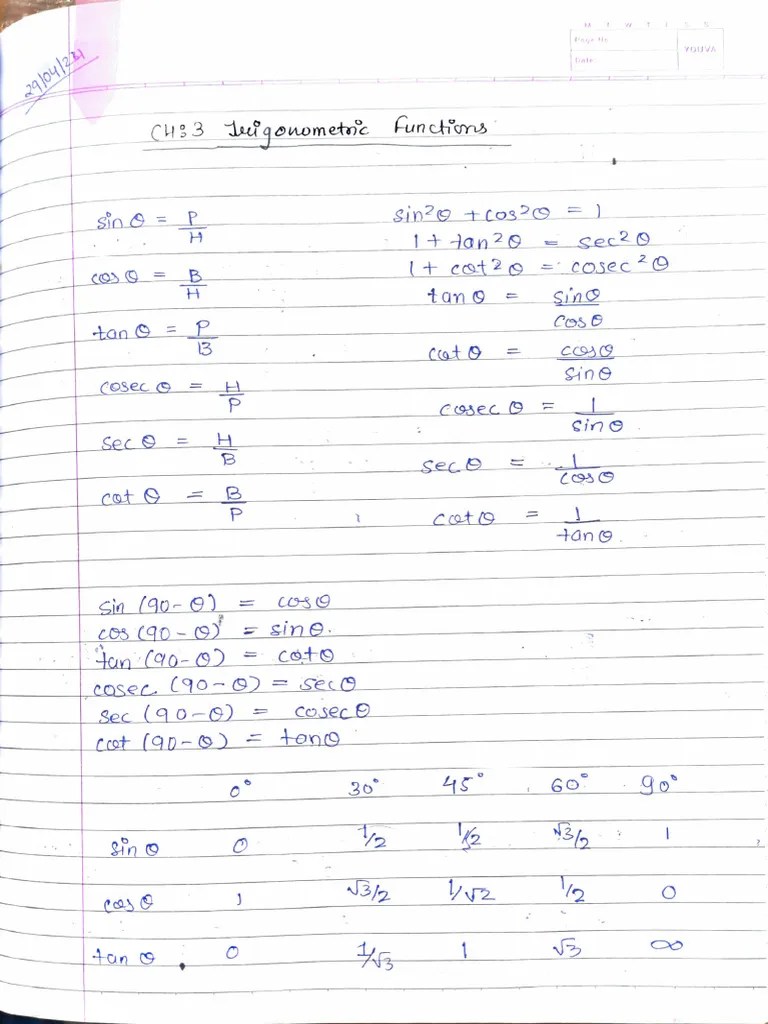 M T W T F S S
Page No.
Date
YOUVA
29/04/23
CH:3 Trigonometric Functions
sin θ = P/H
cos θ = B/H
tan θ = P/B
cosec θ = H/P
sec θ = H/B
cot θ = B/P
sin²θ + cos²θ = 1
1 + tan²θ = sec²θ
1 + cot²θ = cosec²θ
tan θ = sinθ/cosθ
cot θ = cosθ/sinθ
cosec θ = 1/sinθ
sec θ = 1/cosθ
cot θ = 1/tanθ.
sin (90-θ) = cosθ
cos (90-θ) = sinθ.
tan (90-θ) = cotθ
cosec (90-θ) = secθ
sec (90-θ) = cosecθ
cot (90-θ) = tanθ
0° 30° 45° 60° 90°
sin θ 0 1/2 1/√2 √3/2 1
cos θ 1 √3/2 1/√2 1/2 0
tan θ 0 1/√3 1 √3 ∞